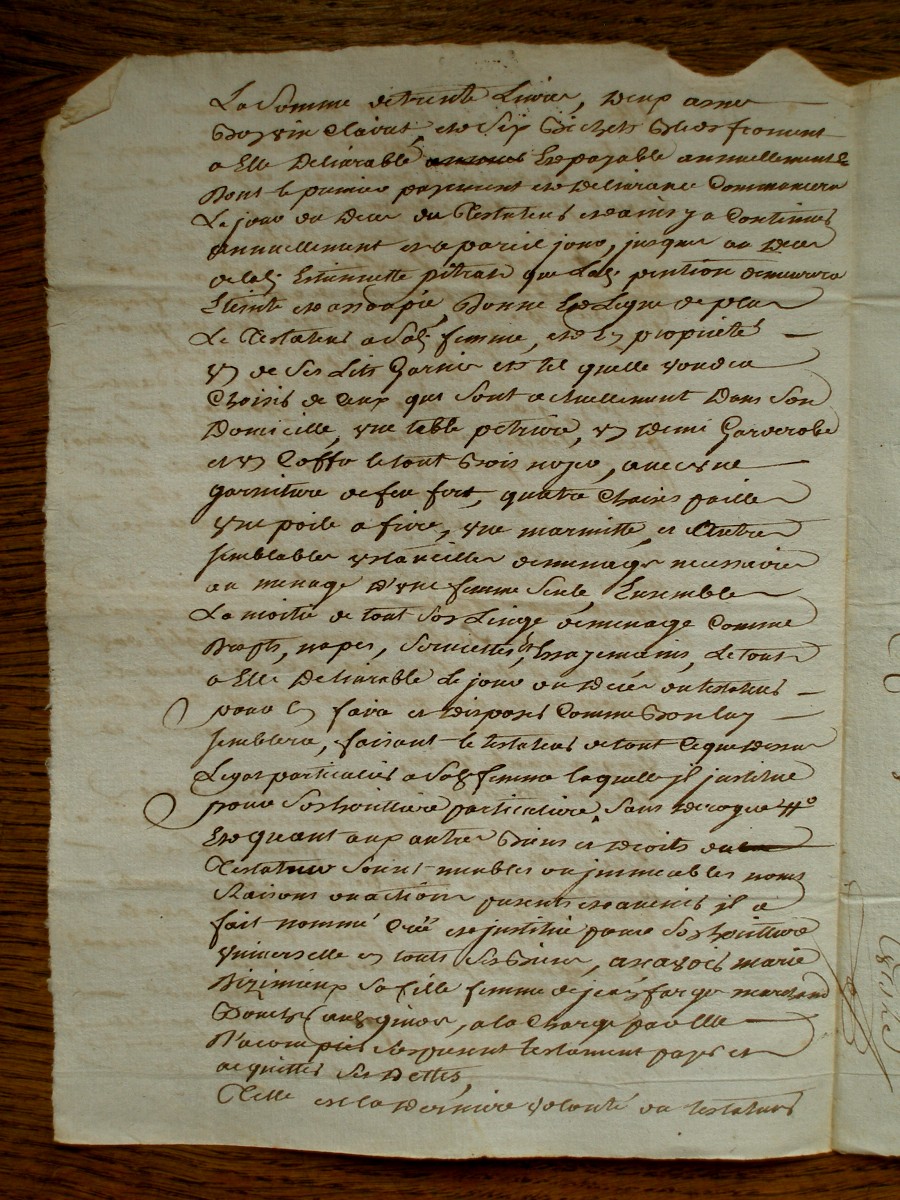 La Somme de trente Livres, deux asnes
Bon vin Clairet, et Six Bichets Bled froment
a Elle Delivrable Et payable annuellement &
Dont le premier payement et Delivrance Commancera
Le jour du Deces du Testateur et ainsy a Continuer
annuellement et a pareil jour, jusques au Deces
de lad Estiennette pitrat que Lad pention demeurera
Eteinte et assoupie, Donne Et Legue de plus
Le Testateur a Sad femme, et en proprieté
un de Ses Lits Garnis et tel quelle voudra
Choisir de Ceux qui Sont actuellement Dans Son
Domicille, une table petriere, un demi Garderobe
et un Coffre le tout Bois noyer, avec une
garniture de feu fert, quatre Chaises paille
une poile a frire, une marmitte, et autres
semblables ustancilles de menage necessaires
au menage D'une femme Seule, Ensemble
La moitié de tout Son Linge de menage Comme
Draps, napes, Serviettes, Essuyemains, Le tout
a Elle Delivrable Le jour du Deces du testateur
pour en faire et disposer Comme Bon luy
semblera, faisant le testateur de tout Ce que Dessus
Legat particulier a Sad femme laquelle il justitue
pour Son heritiere particuliere, Sans
Et quant aux autres Biens et Droits du
Testateur Soient meubles ou jmmeubles noms
Raisons ou actions presents et avenir il a
fait nommé Créé et justitué pour Son heritiere
universelle en touts Ses Biens, marie
Sa fille femme de jean farge marchand
a la Charge par Elle
D'acomplir Son present testament payer et
acquitter Ses Dettes,
Telle est la Derniere volonté du testateur